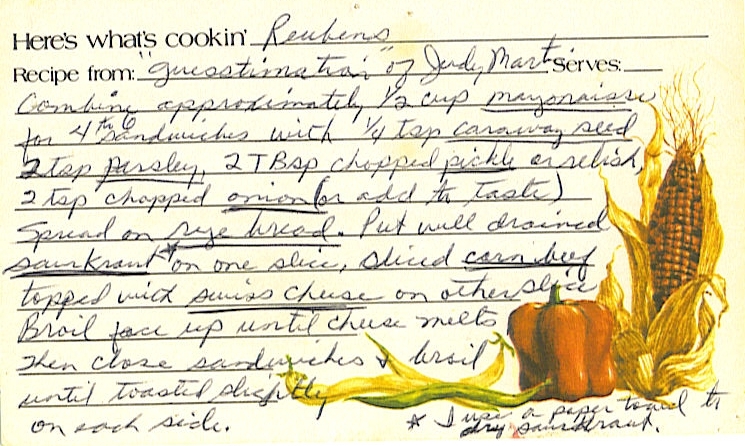 Here's what's cookin' Reubens
Recipe from: "guesstimation" of Judy Mart Serves:
Combine approximately 1/2 cup mayonaise
for 4 to 6 sandwiches with 1/4 tsp caraway seed
2 tsp parsley, 2 TBsp chopped pickle or relish,
2 tsp chopped onion (or add to taste)
Spread on rye bread. Put well drained
saurkraut * on one slice, sliced corn beef
topped with swiss cheese on other slice
Broil face up until cheese melts
then close sandwiches & broil
until toasted slightly
on each side.
* I use a paper towel to
dry saurkraut.